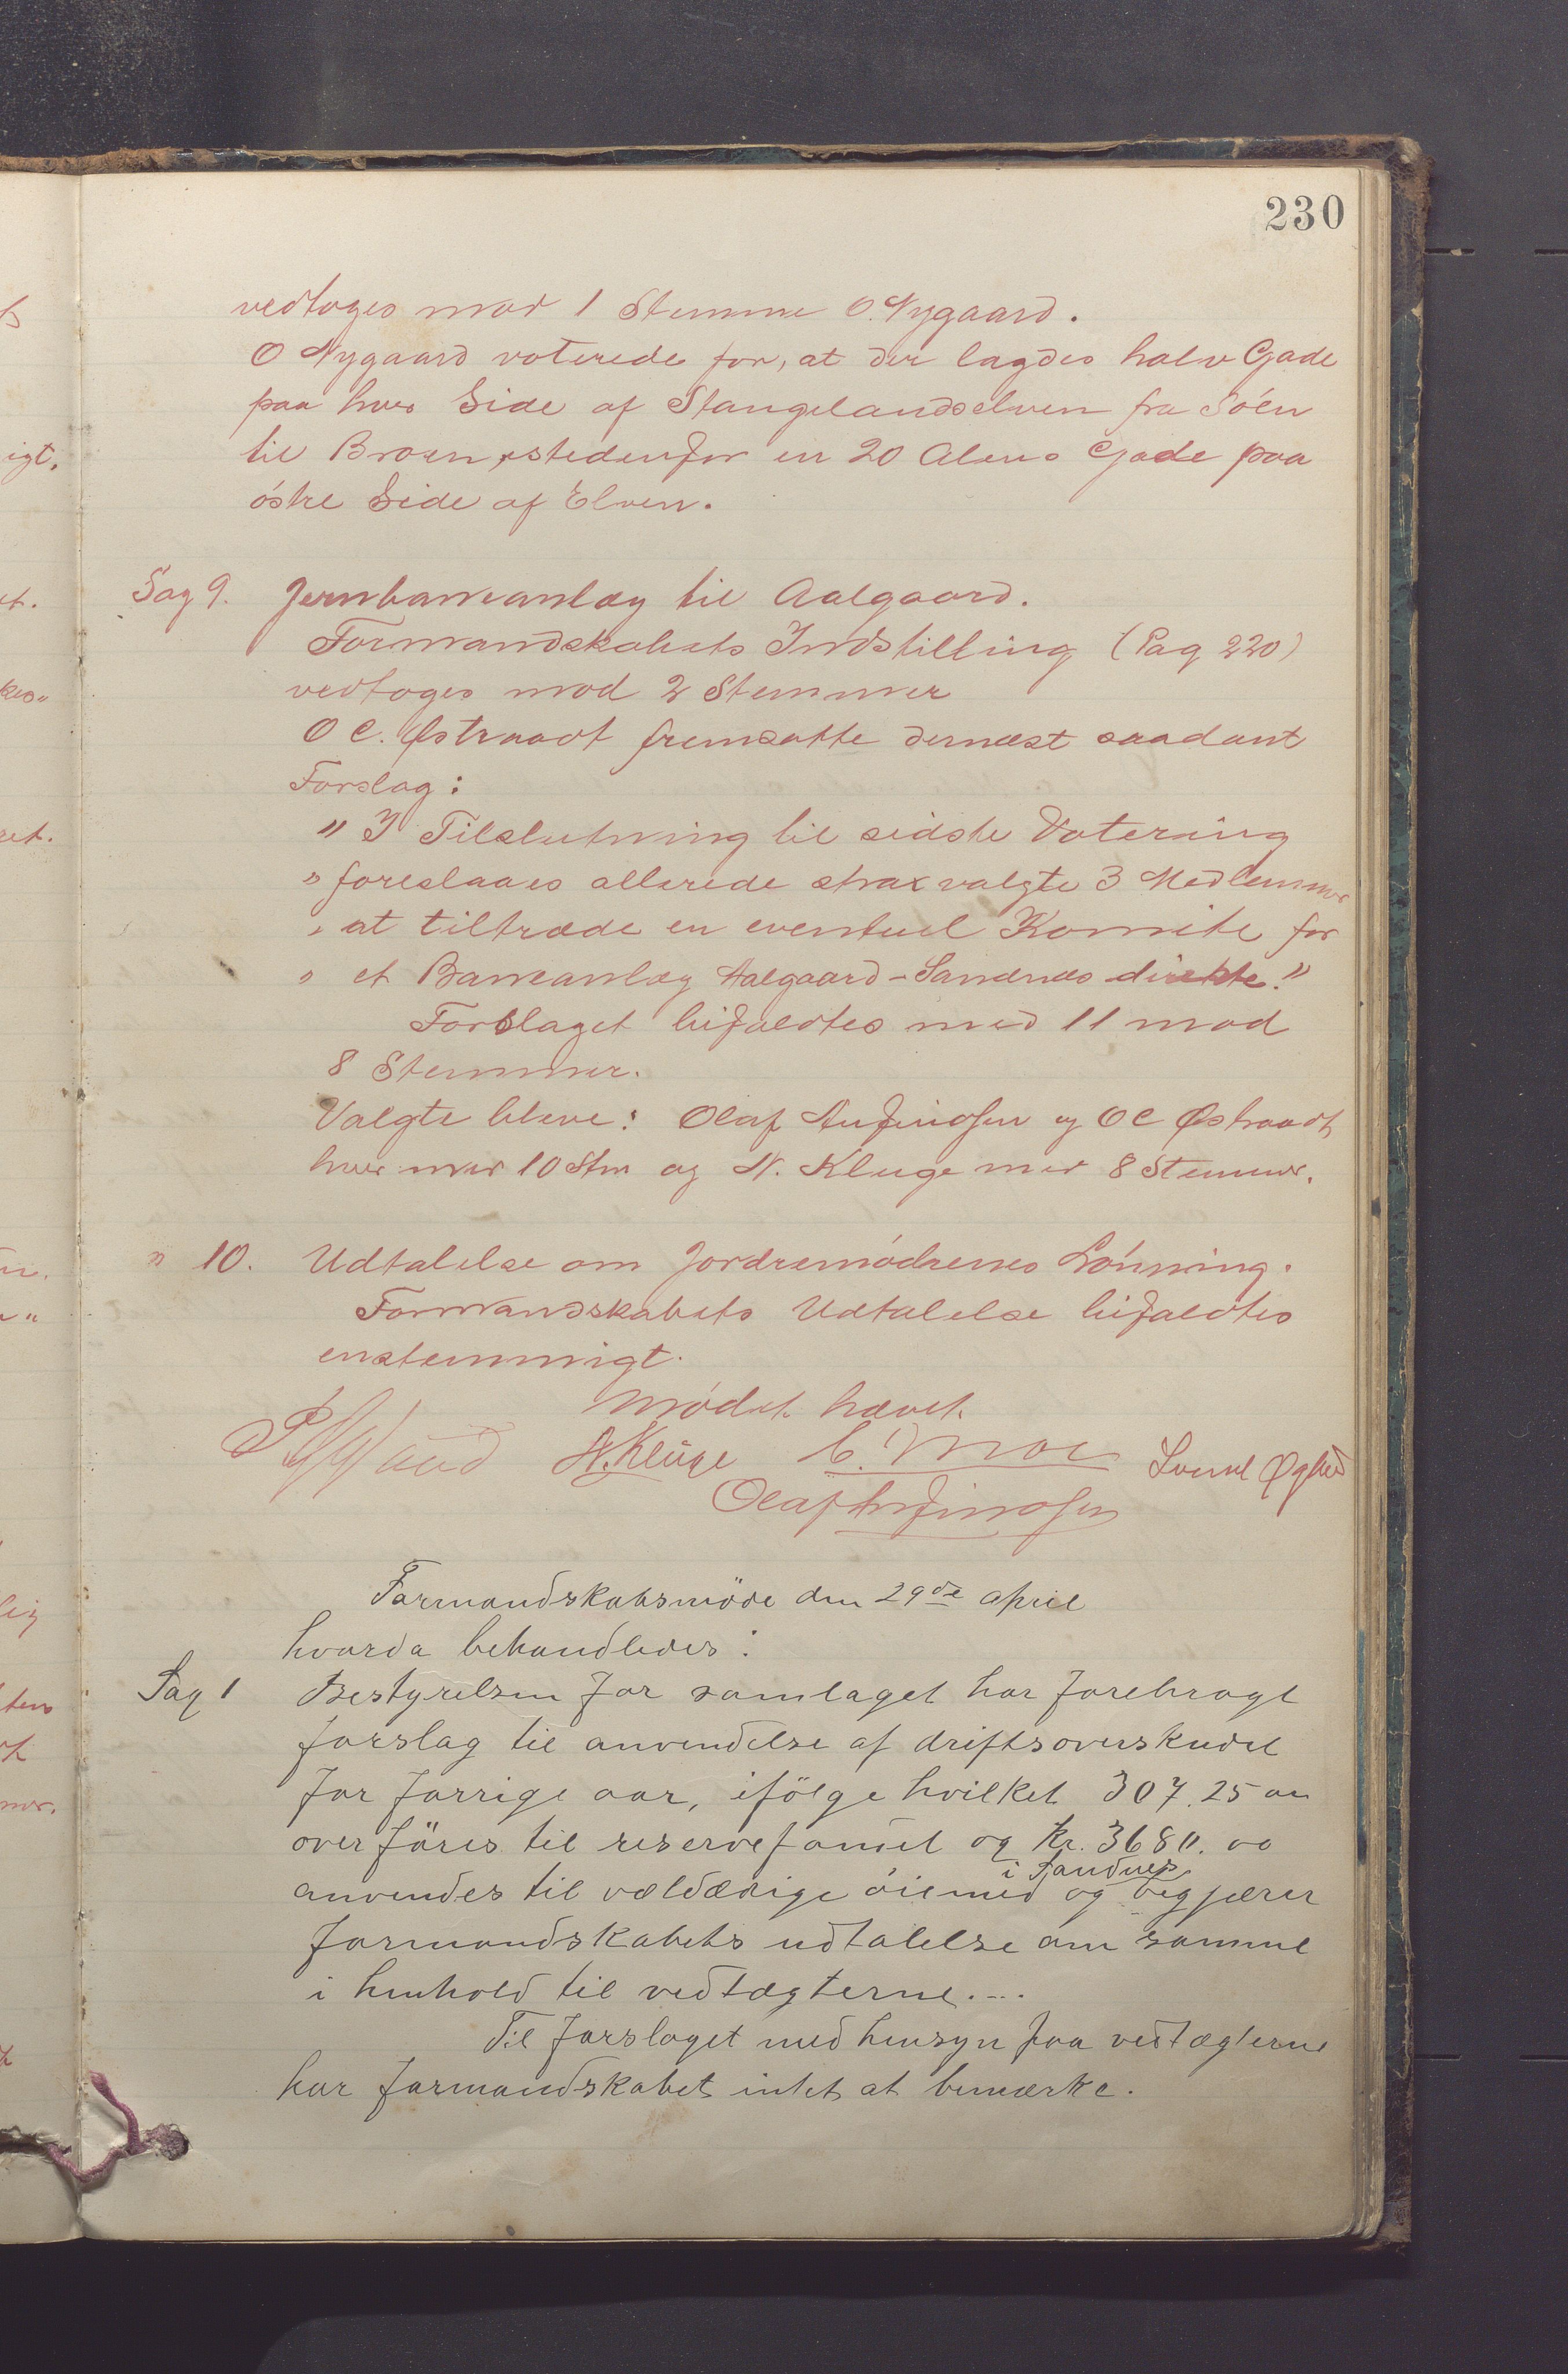 230
vedtoges mod 1 Stemme O. Nygaard.
O Nygaard voterede for, at der lagdes halv Gade
paa hver Side af Stangelandselven fra Söen
til Broen, istedenfor en 20 Alens Gade paa
östre Side af Elven.
Sag 9. Jernbaneanlæg til Aalgaard.
Formandskabets Indstilling (Pag 220)
vedtoges mod 2 Stemmer
O C. Østraadt fremsatte dernæst saadant
Forslag:
" I Tilslutning til sidste Votering
" foreslaaes allerede strax valgte 3 Medlemmer
" at tiltræde en eventuel Komite for
" et Baneanlæg Aalgaard-Sandnæs direkte."
Forslaget bifaldtes med 11 mod
8 Stemmer.
Valgte bleve: Olaf Anfindsen og OC Østraadt
hver med 10 Stm og N. Kluge med 8 Stemmer.
" 10. Udtalelse om Jordremödrenes Lönning.
Formandskabets Udtalelse bifaldtes
enstemmigt.
Mödet hævet.
N. Kluge C. Moe
Olaf Anfindsen
Formandskabsmöde den 29de april
hvorda behandledes:
Sag 1 Bestyrelsen for samlaget har forebragt
forslag til anvendelse af driftsoverskudet
for forrige aar, ifölge hvilket 307.25
overföres til reservefondet og kr. 3680.00
i Sandnes
anvendes til veldædige öiemed og begjærer
formandskabets udtalelse om samme
i henhold til vedtægterne.--.
Til forslaget med hensyn paa vedtægterne
har formandskabet intet at bemærke.